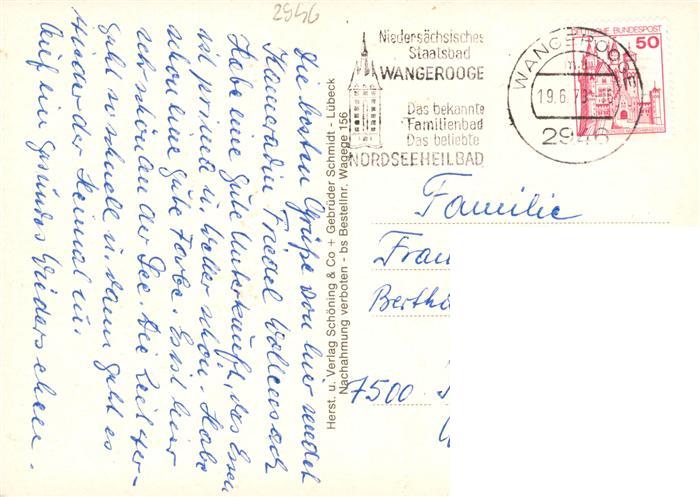 2946
Niedersächsisches
Staatsbad
WANGEROOGE
Das bekannte
Familienbad
Das beliebte
NORDSEEHEILBAD
WANGEROOGE
19.6.78
2946
DEUTSCHE BUNDESPOST
50
Die besten Grüße von hier sendet
Kameradin Friedel
Habe eine gute Unterkunft, das Essen
ist prima u. Wetter schön. Habe
schon eine gute Farbe. Es ist hier
sehr schön an der See. Die Zeit ver-
geht so schnell u. dann geht es
wieder der Heimat zu.
Auf ein gesundes Wiedersehen.
Herst. u. Verlag Schöning & Co + Gebrüder Schmidt - Lübeck
Nachahmung verboten - bs Bestellnr. Wagege 156
Familie
Fran
Bertho
7500